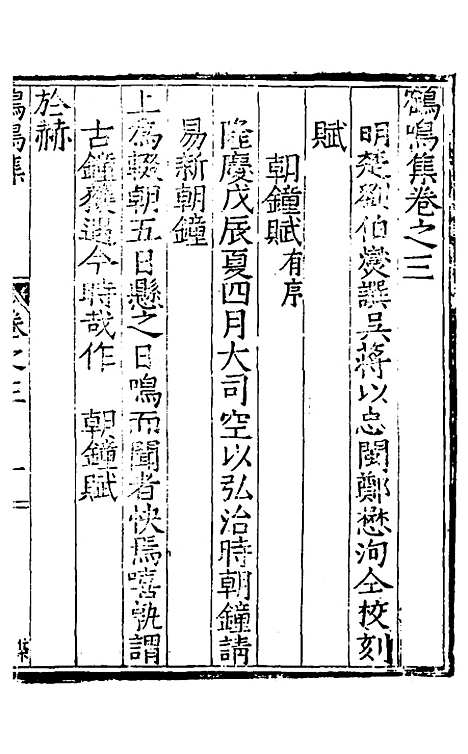 鶴鳴集卷之三
明楚劉伯燮譔吳蔣以忠閩鄭懋洵仝校刻
賦
朝鐘賦有序
隆慶戊辰夏四月大司空以弘治時朝鐘請
易新朝鐘
上為輟朝五日懸之日鳴而聞者快焉嘻孰謂
古鐘今時哉作 朝鐘賦
於赫
鶴鳴集 卷之三 一